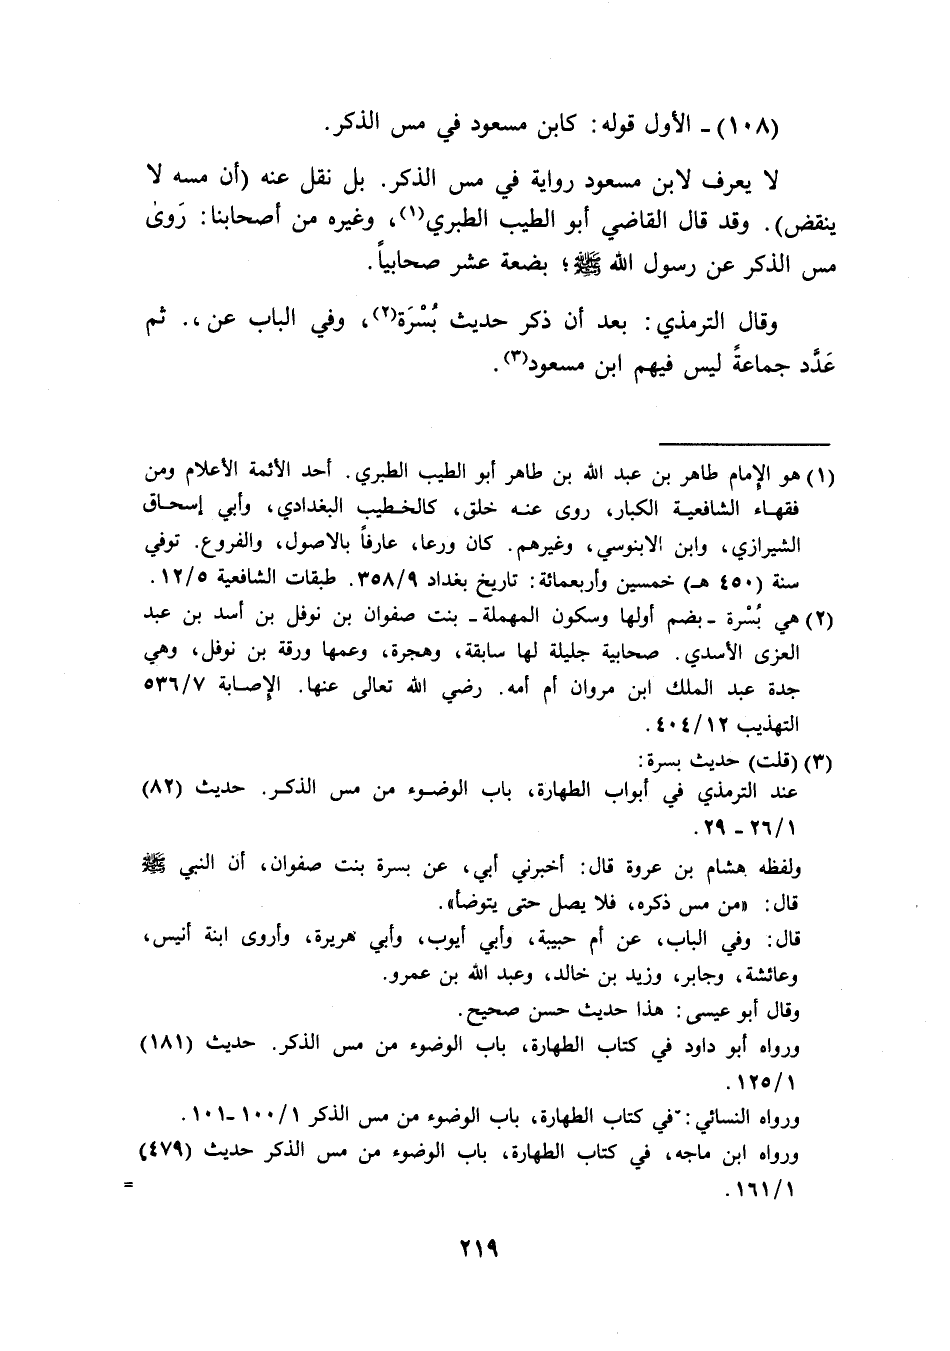 (١٠٨) ـ الأول قوله: كابن مسعود في مس الذكر.
لا يعرف لابن مسعود رواية في مس الذكر. بل نقل عنه (أن مسه لا
ينقض). وقد قال القاضي أبو الطيب الطبري(١)، وغيره من أصحابنا: رَوىٰ
مس الذكر عن رسول الله ﷺ؛ بضعة عشر صحابياً.
وقال الترمذي: بعد أن ذكر حديث بُسْرَة(٢)، وفي الباب عن،. ثم
عَدَّد جماعةً ليس فيهم ابن مسعود(٣).
(١) هو الإمام طاهر بن عبد الله بن طاهر أبو الطيب الطبري. أحد الأئمة الأعلام ومن
فقهاء الشافعية الكبار، روى عنه خلق، كالخطيب البغدادي، وأبي إسحاق
الشيرازي، وابن الابنوسي، وغيرهم. كان ورعا، عارفاً بالاصول، والفروع. توفي
سنة (٤٥٠ هـ) خمسين وأربعمائة: تاريخ بغداد ٣٥٨/٩. طبقات الشافعية ١٢/٥.
(٢) هي بُسْرة ـ بضم أولها وسكون المهملة ـ بنت صفوان بن نوفل بن أسد بن عبد
العزى الأسدي. صحابية جليلة لها سابقة، وهجرة، وعمها ورقة بن نوفل، وهي
جدة عبد الملك ابن مروان أم أمه. رضي الله تعالى عنها. الإصابة ٥٣٦/٧
التهذيب ٤٠٤/١٢.
(٣) (قلت) حديث بسرة:
عند الترمذي في أبواب الطهارة، باب الوضوء من مس الذكر. حديث (٨٢)
٢٦/١ ـ ٢٩.
ولفظه هشام بن عروة قال: أخبرني أبي، عن بسرة بنت صفوان، أن النبي ﷺ
قال: «من مس ذكره، فلا يصل حتى يتوضأ».
قال: وفي الباب، عن أم حبيبة، وأبي أيوب، وأبي هريرة، وأروى ابنة أنيس،
وعائشة، وجابر، وزيد بن خالد، وعبد الله بن عمرو.
وقال أبو عيسى: هذا حديث حسن صحيح.
ورواه أبو داود في كتاب الطهارة، باب الوضوء من مس الذكر. حديث (١٨١)
١٢٥/١.
ورواه النسائي: في كتاب الطهارة، باب الوضوء من مس الذكر ١٠٠/١ـ١٠١.
ورواه ابن ماجه، في كتاب الطهارة، باب الوضوء من مس الذكر حديث (٤٧٩)
١٦١/١. =
٢١٩